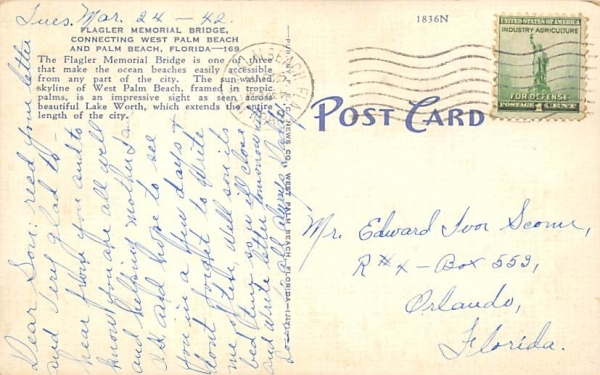 Tues. Mar. 24 - 42.
FLAGLER MEMORIAL BRIDGE,
CONNECTING WEST PALM BEACH
AND PALM BEACH, FLORIDA—169
The Flagler Memorial Bridge is one of three
that make the ocean beaches easily accessible
from any part of the city. The sun-washed
skyline of West Palm Beach, framed in tropic
palms, is an impressive sight as seen across
beautiful Lake Worth, which extends the entire
length of the city.
Dear Son: recd your letter
and very glad to
hear from you and to
know you are all well
and helping mother &
I and hope to see
you in a few days &
dont forget to write
me often, Well son its
bed time so will close
and write letter tomorrow nite
all
1836N
UNITED STATES OF AMERICA
INDUSTRY-AGRICULTURE
FOR DEFENSE
POSTAGE 1 CENT
POST CARD
NEWS CO., WEST PALM BEACH, FLORIDA
Mr. Edward Ivor
R#4 - Box 559,
Orlando,
Florida.